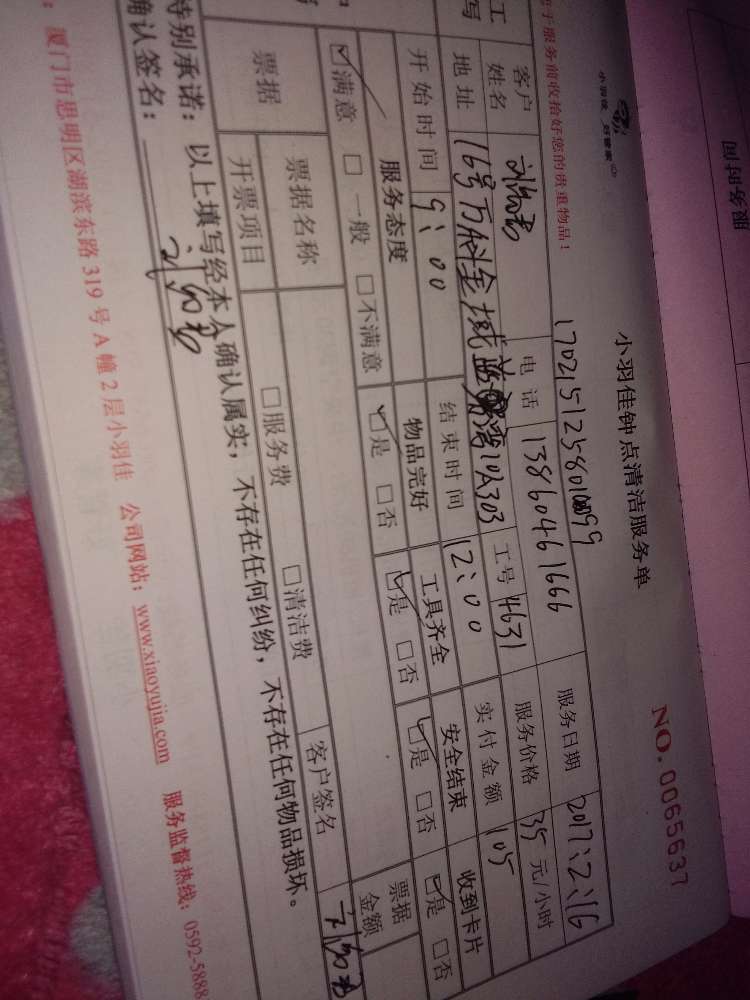 服务项目
小羽佳 好管家
小羽佳钟点清洁服务单
NO.0065637
于服务前收拾好您的贵重物品！
客户姓名 电话 13860461666 服务日期 2017:2:16
地址 16号万科金域蓝湾10A303 工号 4631 服务价格 35 元/小时
开始时间 9:00 结束时间 12:00 实付金额 105
服务态度 物品完好 工具齐全 安全结束 收到卡片
☑满意 □一般 □不满意 ☑是 □否 ☑是 □否 ☑是 □否 ☑是 □否
票据 票据名称 票据金额
开票项目 □服务费 □清洁费 客户签名
特别承诺：以上填写经本人确认属实，不存在任何纠纷，不存在任何物品损坏。
确认签名：
厦门市思明区湖滨东路319号A幢2层小羽佳 公司网站：www.xiaoyujia.com 服务监督热线：0592-5888